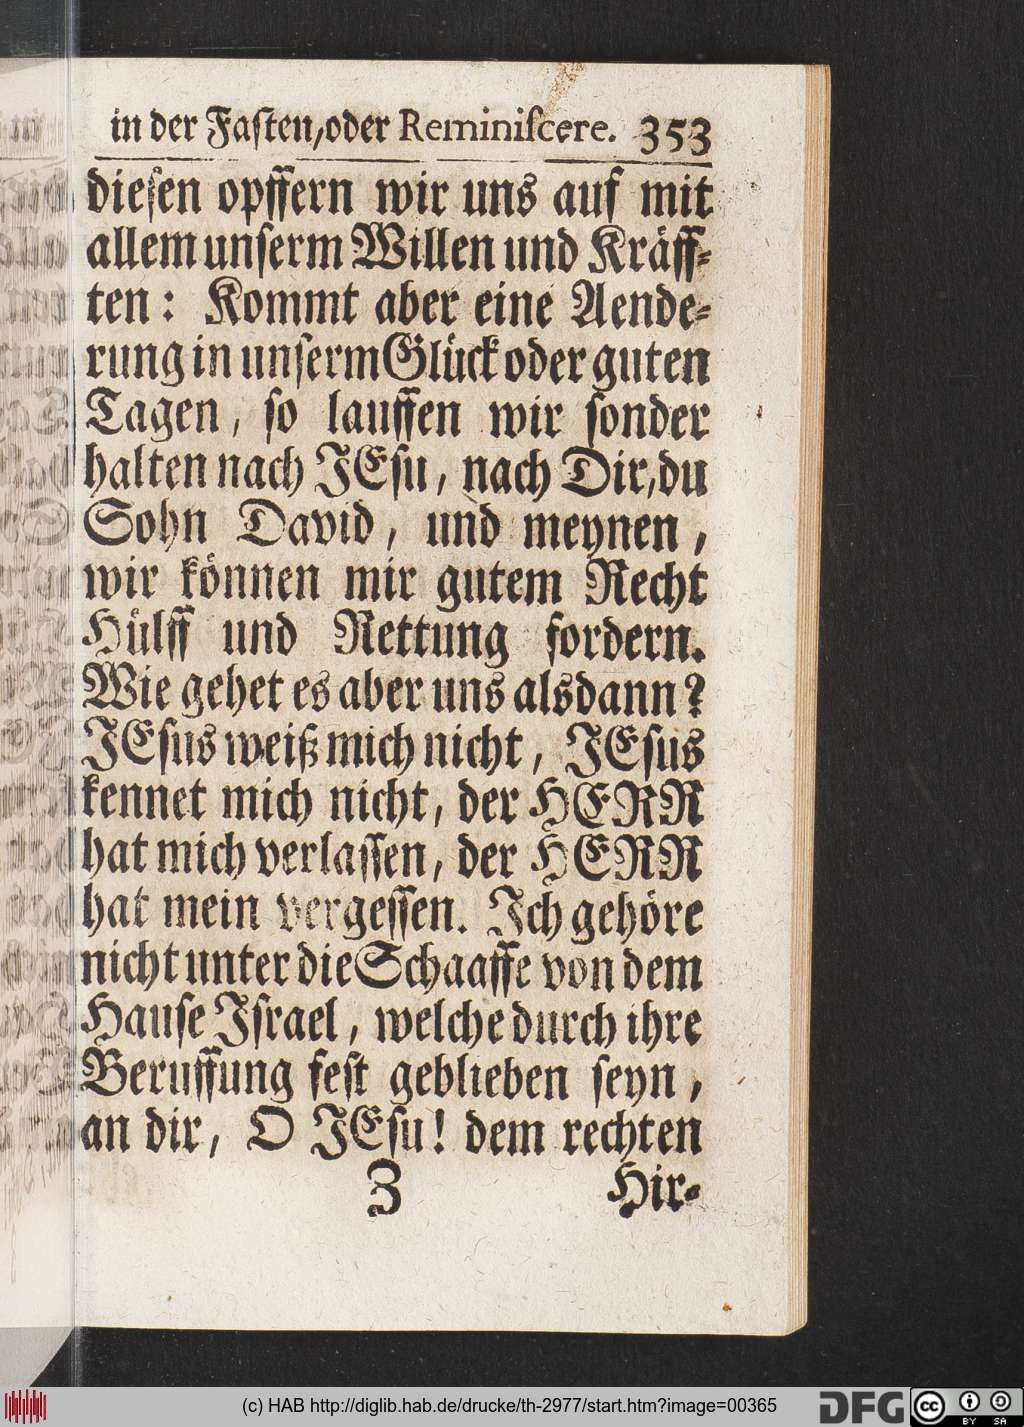 in der Faſten/oder Reminiſcere. 353
dieſen opffern wir uns auf mit
allem unſerm Willen und Kräff⸗
ten: Kommt aber eine Aende⸗
rung in unſerm Glück oder guten
Tagen, ſo lauffen wir ſonder
halten nach JEſu, nach Dir/du
Sohn David, und meynen,
wir können mir gutem Recht
Hülff und Rettung fordern.
Wie gehet es aber uns alsdann?
JEſus weiß mich nicht, JEſus
kennet mich nicht, der HERR
hat mich verlaſſen, der HERR
hat mein vergeſſen. Jch gehöre
nicht unter die Schaaffe von dem
Hauſe Jſrael, welche durch ihre
Beruffung feſt geblieben ſeyn,
an dir, O JEſu! dem rechten
Z Hir⸗
(c) HAB http://diglib.hab.de/drucke/th-2977/start.htm?image=00365
DFG
cc BY SA